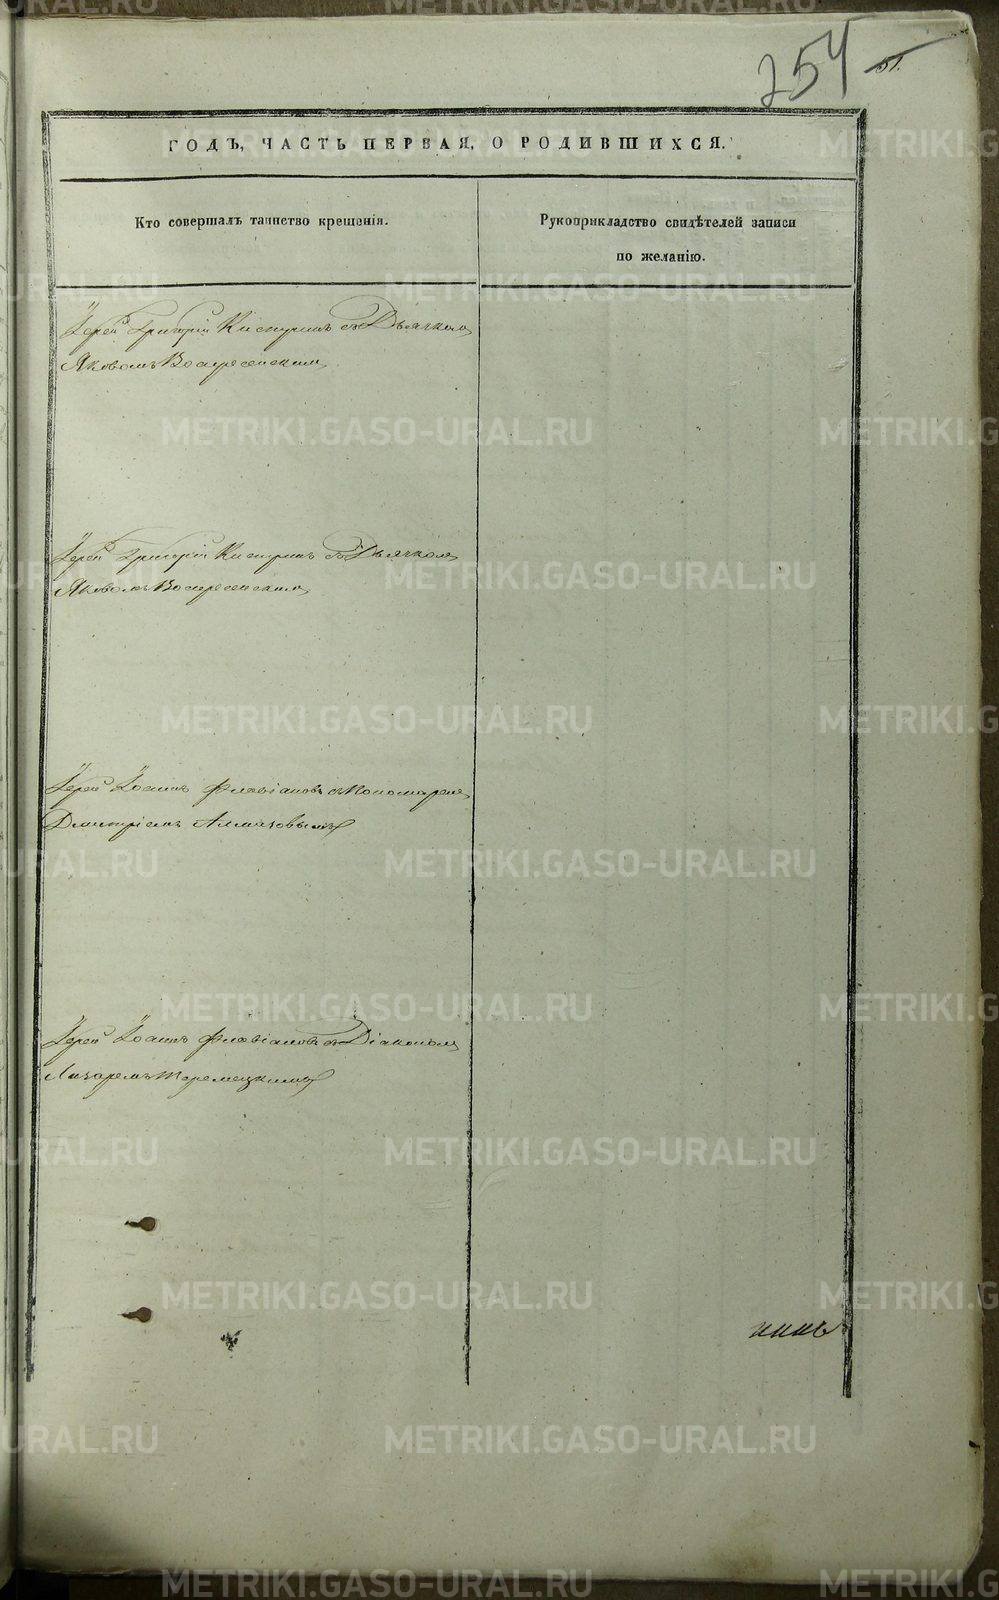 254 51.
ГОДЪ, ЧАСТЬ ПЕРВАЯ, О РОДИВШИХСЯ.
Кто совершалъ таинство крещенія.
Рукоприкладство свидѣтелей записи
по желанію.
Іерей Григорій съ Дьячкомъ
Яковомъ Воскресенскимъ
Іерей Григорій съ Дьячкомъ
Яковомъ Воскресенскимъ
Іерей Іоаннъ Флавіановъ съ Пономаремъ
Дмитріемъ
Іерей Іоаннъ Флавіановъ съ Діакономъ
Лазаремъ
METRIKI.GASO-URAL.RU